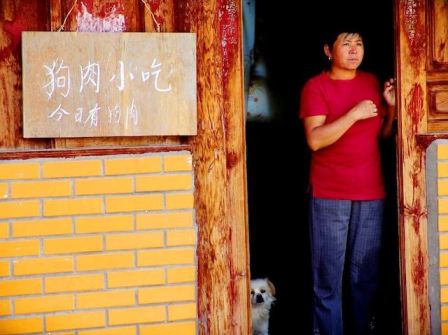 狗肉小吃
今日有狗肉